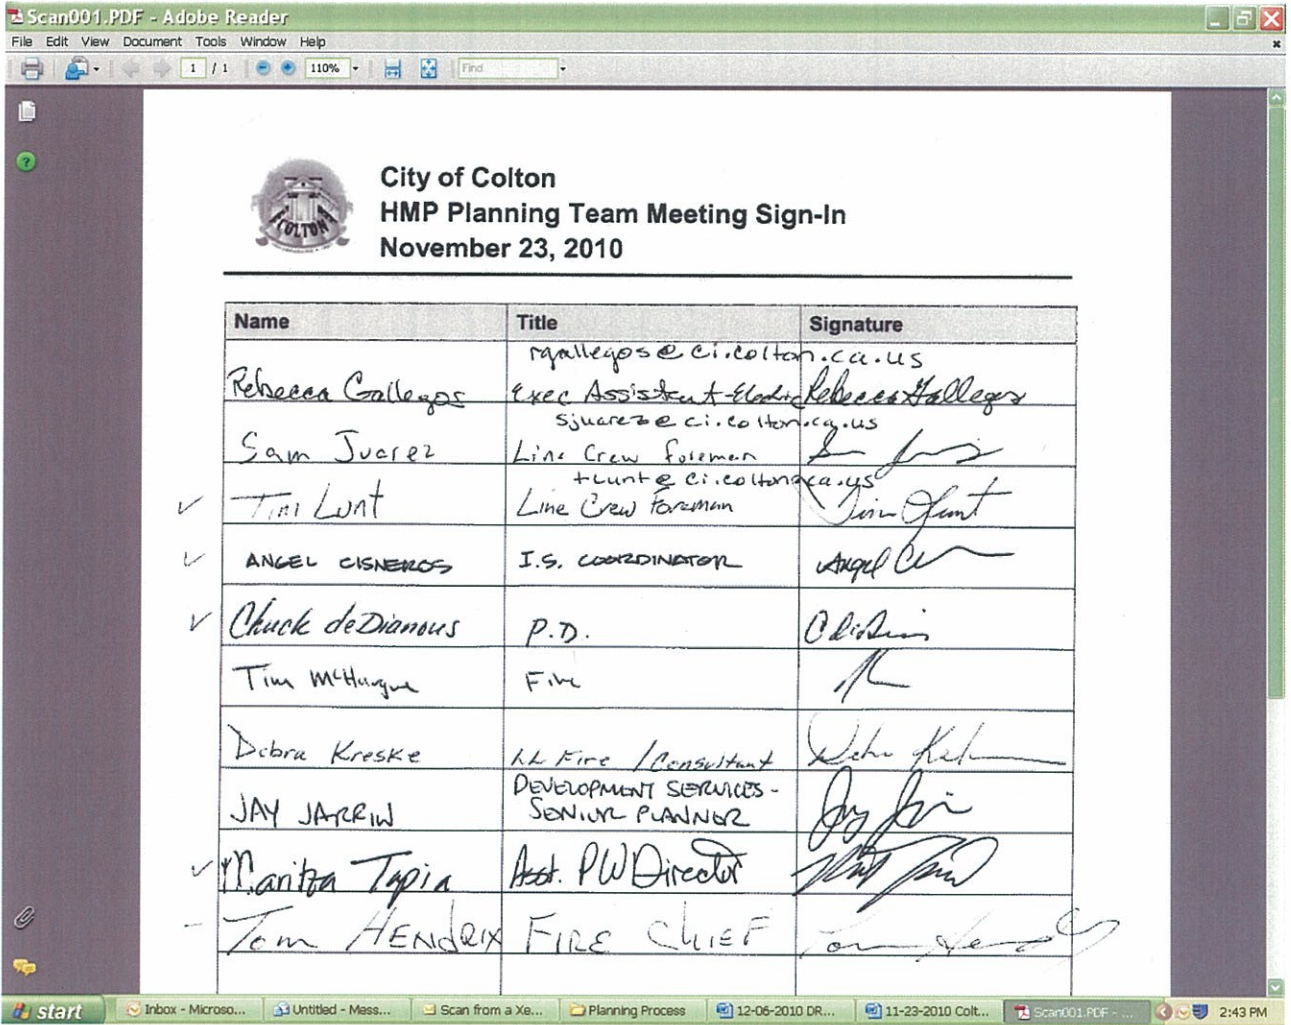 Scan001.PDF - Adobe Reader
File Edit View Document Tools Window Help
1 / 1 110% Find
COLTON
City of Colton
HMP Planning Team Meeting Sign-In
November 23, 2010
Name Title Signature
rgallegos@ci.colton.ca.us
Rebecca Gallegos Exec Assistant-Electric Rebecca Gallegos
sjuarez@ci.colton.ca.us
Sam Juarez Line Crew foreman
tlunt@ci.colton.ca.us
Tim Lunt Line Crew Foreman Tim Lunt
ANGEL CISNEROS I.S. COORDINATOR Angel C
Chuck deDianous P.D.
Tim McHargue Fire
Debra Kreske LL Fire / Consultant
DEVELOPMENT SERVICES -
JAY JARRIN SENIOR PLANNER Jay Jarrin
Maritza Tapia Asst. PW Director
Tom HENDRIX FIRE CHIEF
start Inbox - Microso... Untitled - Mess... Scan from a Xe... Planning Process 12-06-2010 DR... 11-23-2010 Colt... Scan001.PDF - ... 2:43 PM